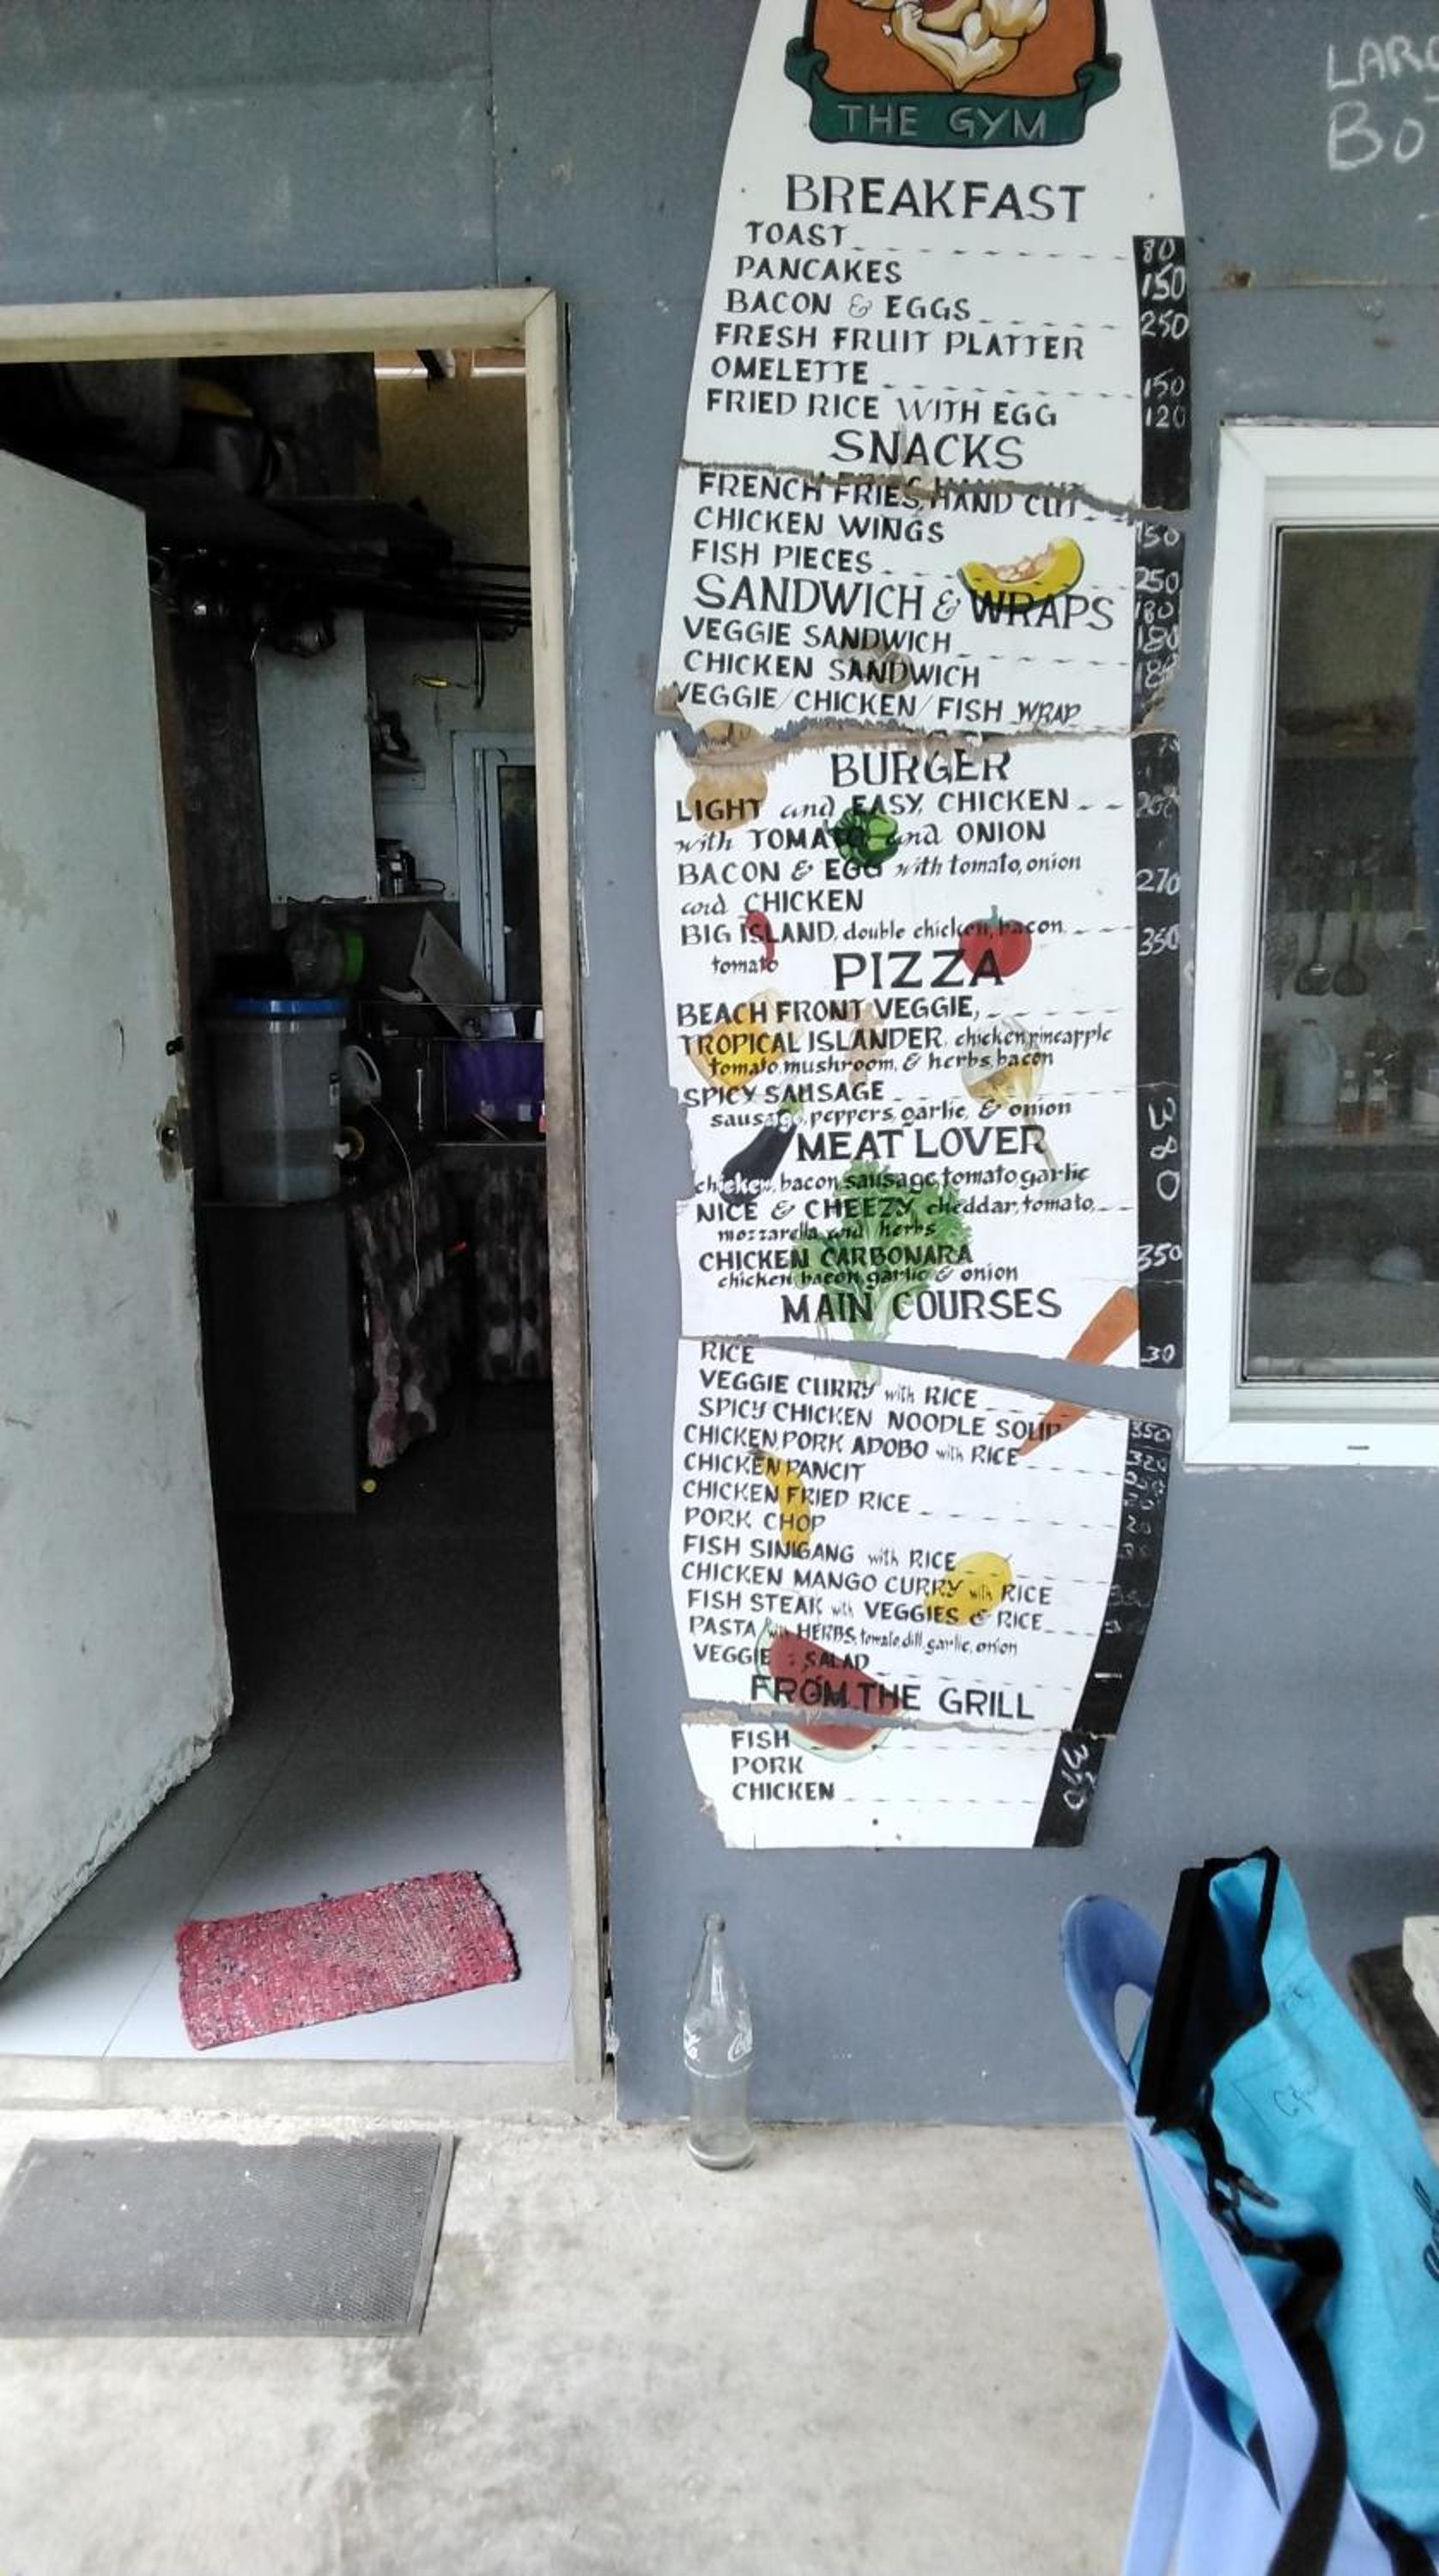 THE GYM
LARG
BOT
BREAKFAST
TOAST 80
PANCAKES 150
BACON & EGGS 250
FRESH FRUIT PLATTER
OMELETTE 150
FRIED RICE WITH EGG 120
SNACKS
FRENCH FRIES, HAND CUT 150
CHICKEN WINGS
FISH PIECES 250
SANDWICH & WRAPS 180
VEGGIE SANDWICH 180
CHICKEN SANDWICH
VEGGIE/CHICKEN/FISH WRAP
BURGER
LIGHT and EASY, CHICKEN
with TOMATO and ONION
BACON & EGG with tomato, onion 270
and CHICKEN
BIG ISLAND, double chicken, bacon 350
tomato
PIZZA
BEACH FRONT VEGGIE,
TROPICAL ISLANDER, chicken, pineapple
tomato, mushroom, & herbs, bacon
SPICY SAUSAGE
sausage, peppers, garlic, & onion
MEAT LOVER 380
chicken, bacon, sausage, tomato, garlic
NICE & CHEEZY, cheddar, tomato,
mozzarella, and herbs
CHICKEN CARBONARA 350
chicken, bacon, garlic & onion
MAIN COURSES
RICE 30
VEGGIE CURRY with RICE
SPICY CHICKEN NOODLE SOUP 350
CHICKEN, PORK ADOBO with RICE 320
CHICKEN PANCIT
CHICKEN FRIED RICE
PORK CHOP
FISH SINIGANG with RICE
CHICKEN MANGO CURRY with RICE
FISH STEAK with VEGGIES & RICE
PASTA with HERBS, tomato, dill, garlic, onion
VEGGIE : SALAD
FROM THE GRILL
FISH
PORK 350
CHICKEN